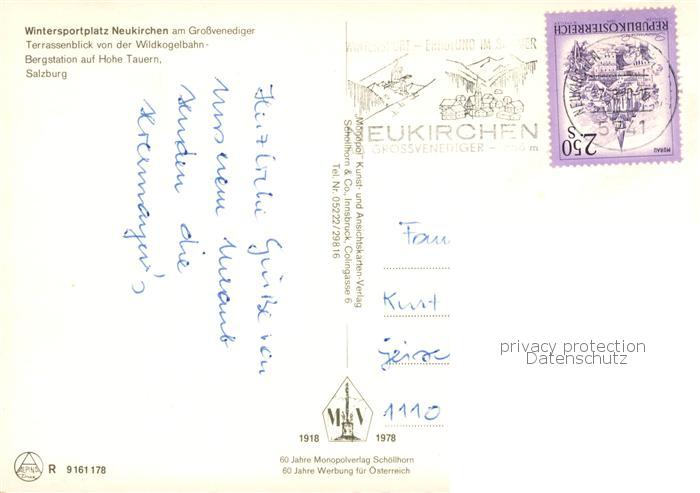 Wintersportplatz Neukirchen am Großvenediger
Terrassenblick von der Wildkogelbahn-
Bergstation auf Hohe Tauern,
Salzburg
Herzliche Grüße von
Unserem Urlaub
senden die
WINTERSPORT - ERHOLUNG IM SOMMER
NEUKIRCHEN
GROSSVENEDIGER -
REPUBLIK ÖSTERREICH
2.50 S
MURAU
NEUKIRCHEN
5741
"Monopol" Kunst- und Ansichtskarten-Verlag
Schöllhorn & Co., Innsbruck, Colingasse 6
Tel. Nr. 05222/29816
Fam
Kurt
1110
privacy protection
Datenschutz
M V
1918 1978
60 Jahre Monopolverlag Schöllhorn
60 Jahre Werbung für Österreich
ALPINE
R 9161178